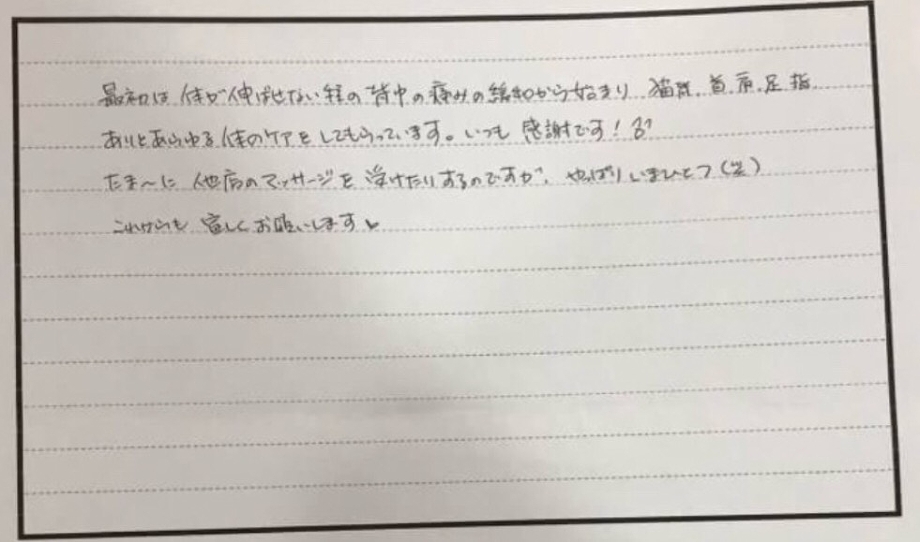 最初は体が伸ばせない程の背中の痛みの緩和から始まり 猫背.首.肩.足指
ありとあらゆる体のケアをしてもらっています。いつも 感謝です!
たま〜に 他店のマッサージを 受けたりするのですが、やっぱりいまひとつ(笑)
これからも 宜しくお願いします♥